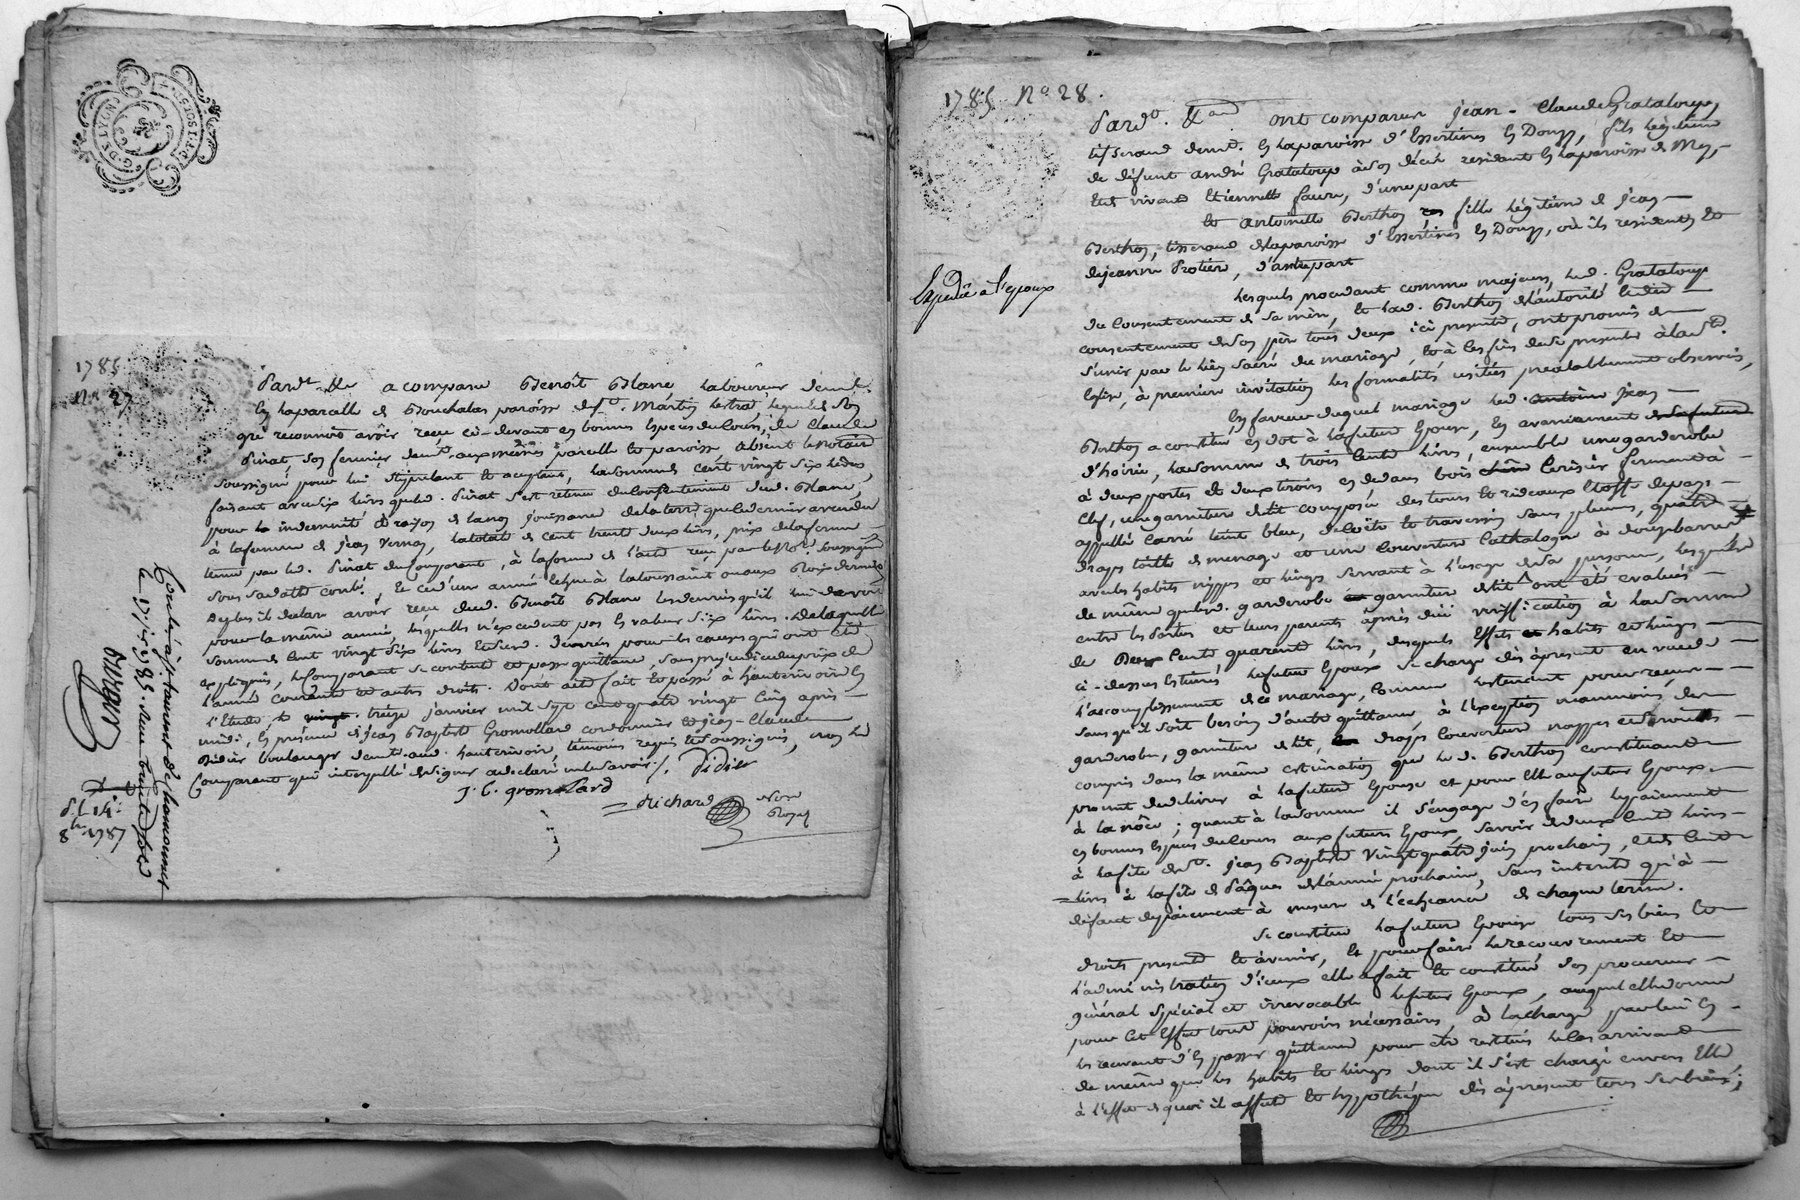 G. DE LYON
1785
No 27
Pardt. Me a comparu Benoît Blanc laboureur demt.
en la parcelle de Bouchalas paroisse de St. Martin Lestra, lequel de son
gré reconnoit avoir reçu ci-devant en bonnes especes du cours, de Claude
Pinat son fermier demt. aux mêmes parcelle et paroisse, absent le notaire
soussigné pour lui stipulant et acceptant, la somme de cent vingt six livres,
faisant avec six livres que led. Pinat s'est retenu du consentement dud. Blanc,
pour indemnité à raison de la non jouissance de la terre que le dernier a vendu
à la femme de Jean Vernay, la total de cent trente deux livres, prix de la ferme
tenue par led. Pinat du comparant, à la forme de l'acte reçu par le Nore. soussigné
sous sa datte contr., et ce d'un année echue à la toussaint
declare avoir reçu dud. Benoît Blanc les denrées qu'il lui devoit
pour la même année, lesquelles n'excedent pas la valeur de six livres. De laquelle
somme de cent vingt six livres et desd. denrées pour les causes qui ont été
expliquées, le comparant se contente et passe quittance, sans prejudice du prix de
l'année courante et autres droits. Dont acte fait et passé à hauterivoire en
l'Etude, le treize janvier mil sept cent quatre vingt cinq après
midi, en presence de Jean Baptiste Gromollard cordonnier et Jean-Claude
Didier boulanger demt. aud. hauterivoire, témoins requis et soussignés, non led.
comparant qui interpellé de signer a declaré ne le savoir ./. Didier
J. C. gromolard
Richard Nore
Royal
1785 No 28.
Pardt. Me ont comparu Jean-Claude Grataloup,
tisserand demt. en la paroisse d'Essertines en Donzy, fils légitime
de défunt André Grataloup à son décès residant en la paroisse de Mey,
et de vivante Etiennette faure, d'une part
et Antoinette Berthon fille légitime de Jean
Berthon, tisserand de la paroisse d'Essertines en Donzy, où ils resident, et
de jeanne Protiere, d'autre part
Expedié à l'époux
Lesquels procedant comme majeurs, led. Grataloup
du consentement de sa mere, et lad. Berthon de l'autorité et du
consentement de son père tous deux ici presents, ont promis de
s'unir par le lien sacré du mariage, et à ces fins de se presenter à la Ste.
Eglise, à premiere invitation les formalités usitées prealablement observées,
En faveur duquel mariage led. Jean
Berthon a constitué en dot à la future épouse, en avancement
d'hoirie, la somme de trois cents livres, ensemble une garderobe
à deux portes et deux tiroirs en dedans bois cerisier fermant à
clef, une garniture de lit composée des tours et rideaux etoffe de pays
appellée carré teint bleu, de coëte et traversin sans plumes, quatre
draps toille de menage et une couverture Cathalogne à douze barres
avec les habits nippes et linges servant à l'usage de sa personne, lesquels
de même que lad. garderobe garniture de lit ont été evalués
entre les parties et leurs parents après due verification à la somme
de Deux cents quarante livres, desquels effets habits et linges
ci-dessus estimés le futur époux se charge dès àpresent en vue de
l'accomplissement de ce mariage, comme les tenant pour reçus
sans qu'il soit besoin d'autre quittance, à l'exception neanmoins des
garderobe, garniture de lit, draps couverture nappes et serviettes
compris dans la même estimation que led. Berthon constituant
promet de delivrer à la future épouse et pour elle au futur époux
à la nôce; quant à la somme il s'engage d'en faire le payement
en bonnes especes du cours aux futurs époux, savoir de deux cents livres
à la fête de St. Jean Baptiste vingt quatre juin prochain, et de cent
livres à la fête de Pâques de l'année prochaine, sans interets qu'à
défaut de payement à mesure de l'echeance de chaque terme.
Se constitue la future épouse tous ses biens et
droits presents et àvenir, et pour faire le recouvrement et
l'administration d'iceux elle a fait et constitué son procureur
général spécial et irrevocable le futur époux, auquel elle donne
pour cet effet tous pouvoirs nécessaires, à la charge par lui en
les recevant d'en passer quittance pour être restitués le cas arrivant
de même que les habits et linges dont il s'est chargé envers Elle
à l'effet de quoi il affecte et hypothéque dès àpresent tous ses biens;